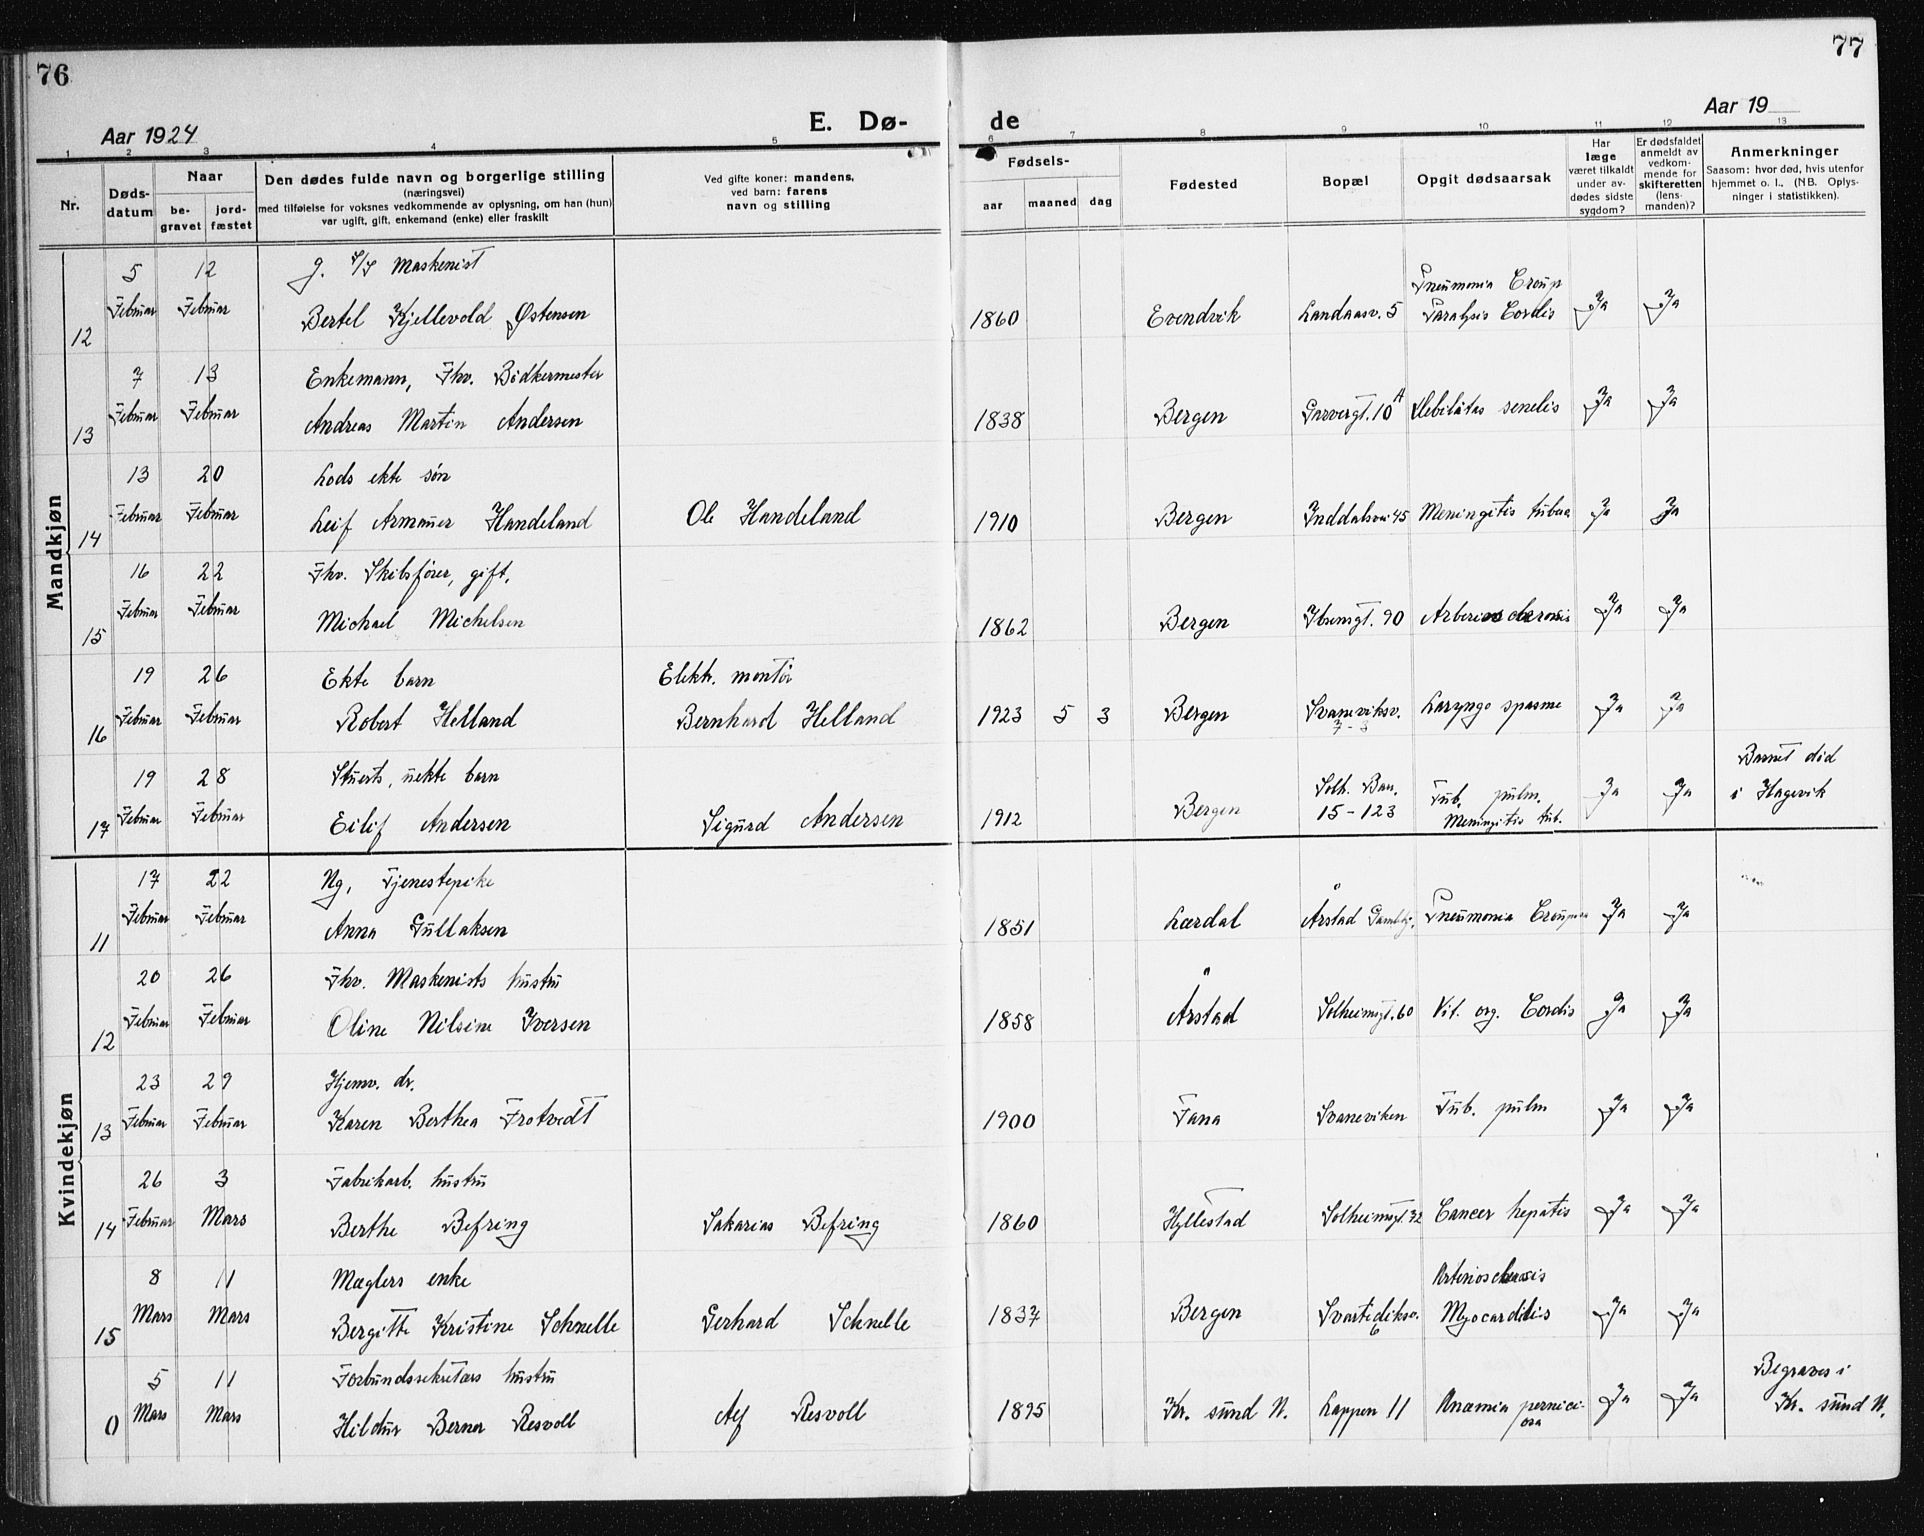 76
77
Aar 1924
E. Dø-
de
Aar 19
1 2 3 4 5 6 7 8 9 10 11 12 13
Nr.
Døds-
datum
Naar
be-
gravet
jord-
fæstet
Den dødes fulde navn og borgerlige stilling
(næringsvei)
med tilføielse for voksnes vedkommende av oplysning, om han (hun)
var ugift, gift, enkemand (enke) eller fraskilt
Ved gifte koner: mandens,
ved barn: farens
navn og stilling
Fødsels-
aar maaned dag
Fødested
Bopæl
Opgit dødsaarsak
Har
læge
været tilkaldt
under av-
dødes sidste
sygdom?
Er dødsfaldet
anmeldt av
vedkom-
mende for
skifteretten
(lens-
manden)?
Anmerkninger
Saasom: hvor død, hvis utenfor
hjemmet o. l., (NB. Oplys-
ninger i statistikken).
Mandkjøn
5 12 g. Maskenist Pneumonia Croup
12 Februar Februar Bertel Kjellevold Østensen 1860 Evendvik Landaasv. 5 Paralysis Cordis Ja Ja
7 13 Enkemann, Fhv. Bödkermester
13 Februar Februar Andreas Martin Andersen 1838 Bergen 10 A Debilitas senelis Ja Ja
13 20 Lods ekte søn
14 Februar Februar Leif Armauer Handeland Ole Handeland 1910 Bergen Inddalsvei 45 Meningitis Ja Ja
16 22 Fhv. Skibsfører, gift.
15 Februar Februar Michael Michelsen 1862 Bergen Ibsensgt. 90 Ja Ja
19 26 Ekte barn Elektr. montör
16 Februar Februar Robert Helland Bernhard Helland 1923 5 3 Bergen Svaneviksv. Laryngo spasme Ja Ja
7 - 3
19 28 Stuerts, uekte barn Solh. Bar. Barnet död
17 Februar Februar Eilif Andersen Sigurd Andersen 1912 Bergen 15 - 123 Tub. pulm. Ja Ja i Hagevik
Meningitis tub.
Kvindekjøn
17 22 Ug, Tjenestepike
11 Februar Februar Anna Gullaksen 1851 Lærdal Årstad Pneumonia Ja Ja
20 26 Fhv. Maskenists hustru
12 Februar Februar Oline Nilsine Iversen 1858 Årstad Solheimsgt. 60 Vit. org. Cordis Ja Ja
23 29 Hjemv. dr.
13 Februar Februar Karen Berthea Trotvedt 1900 Fana Svaneviken Tub. pulm Ja Ja
26 3 Fabrikarb. hustru
14 Februar Mars Berthe Befring Sakarias Befring 1860 Hyllestad Solheimsgt. 32 Cancer hepatis Ja Ja
8 11 Mæglers enke Arteriosclerosis
15 Mars Mars Bergitte Kristine Schnelle Gerhard Schnelle 1837 Bergen Svartediksv. Myocarditis Ja Ja
6
5 11 Forbundssekretærs hustru Begraves i
0 Mars Mars Hildur Berner Resvoll Alf Resvoll 1895 Kr. sund N. Lappen 11 Anæmia pernici- Ja Ja Kr. sund N.
osa